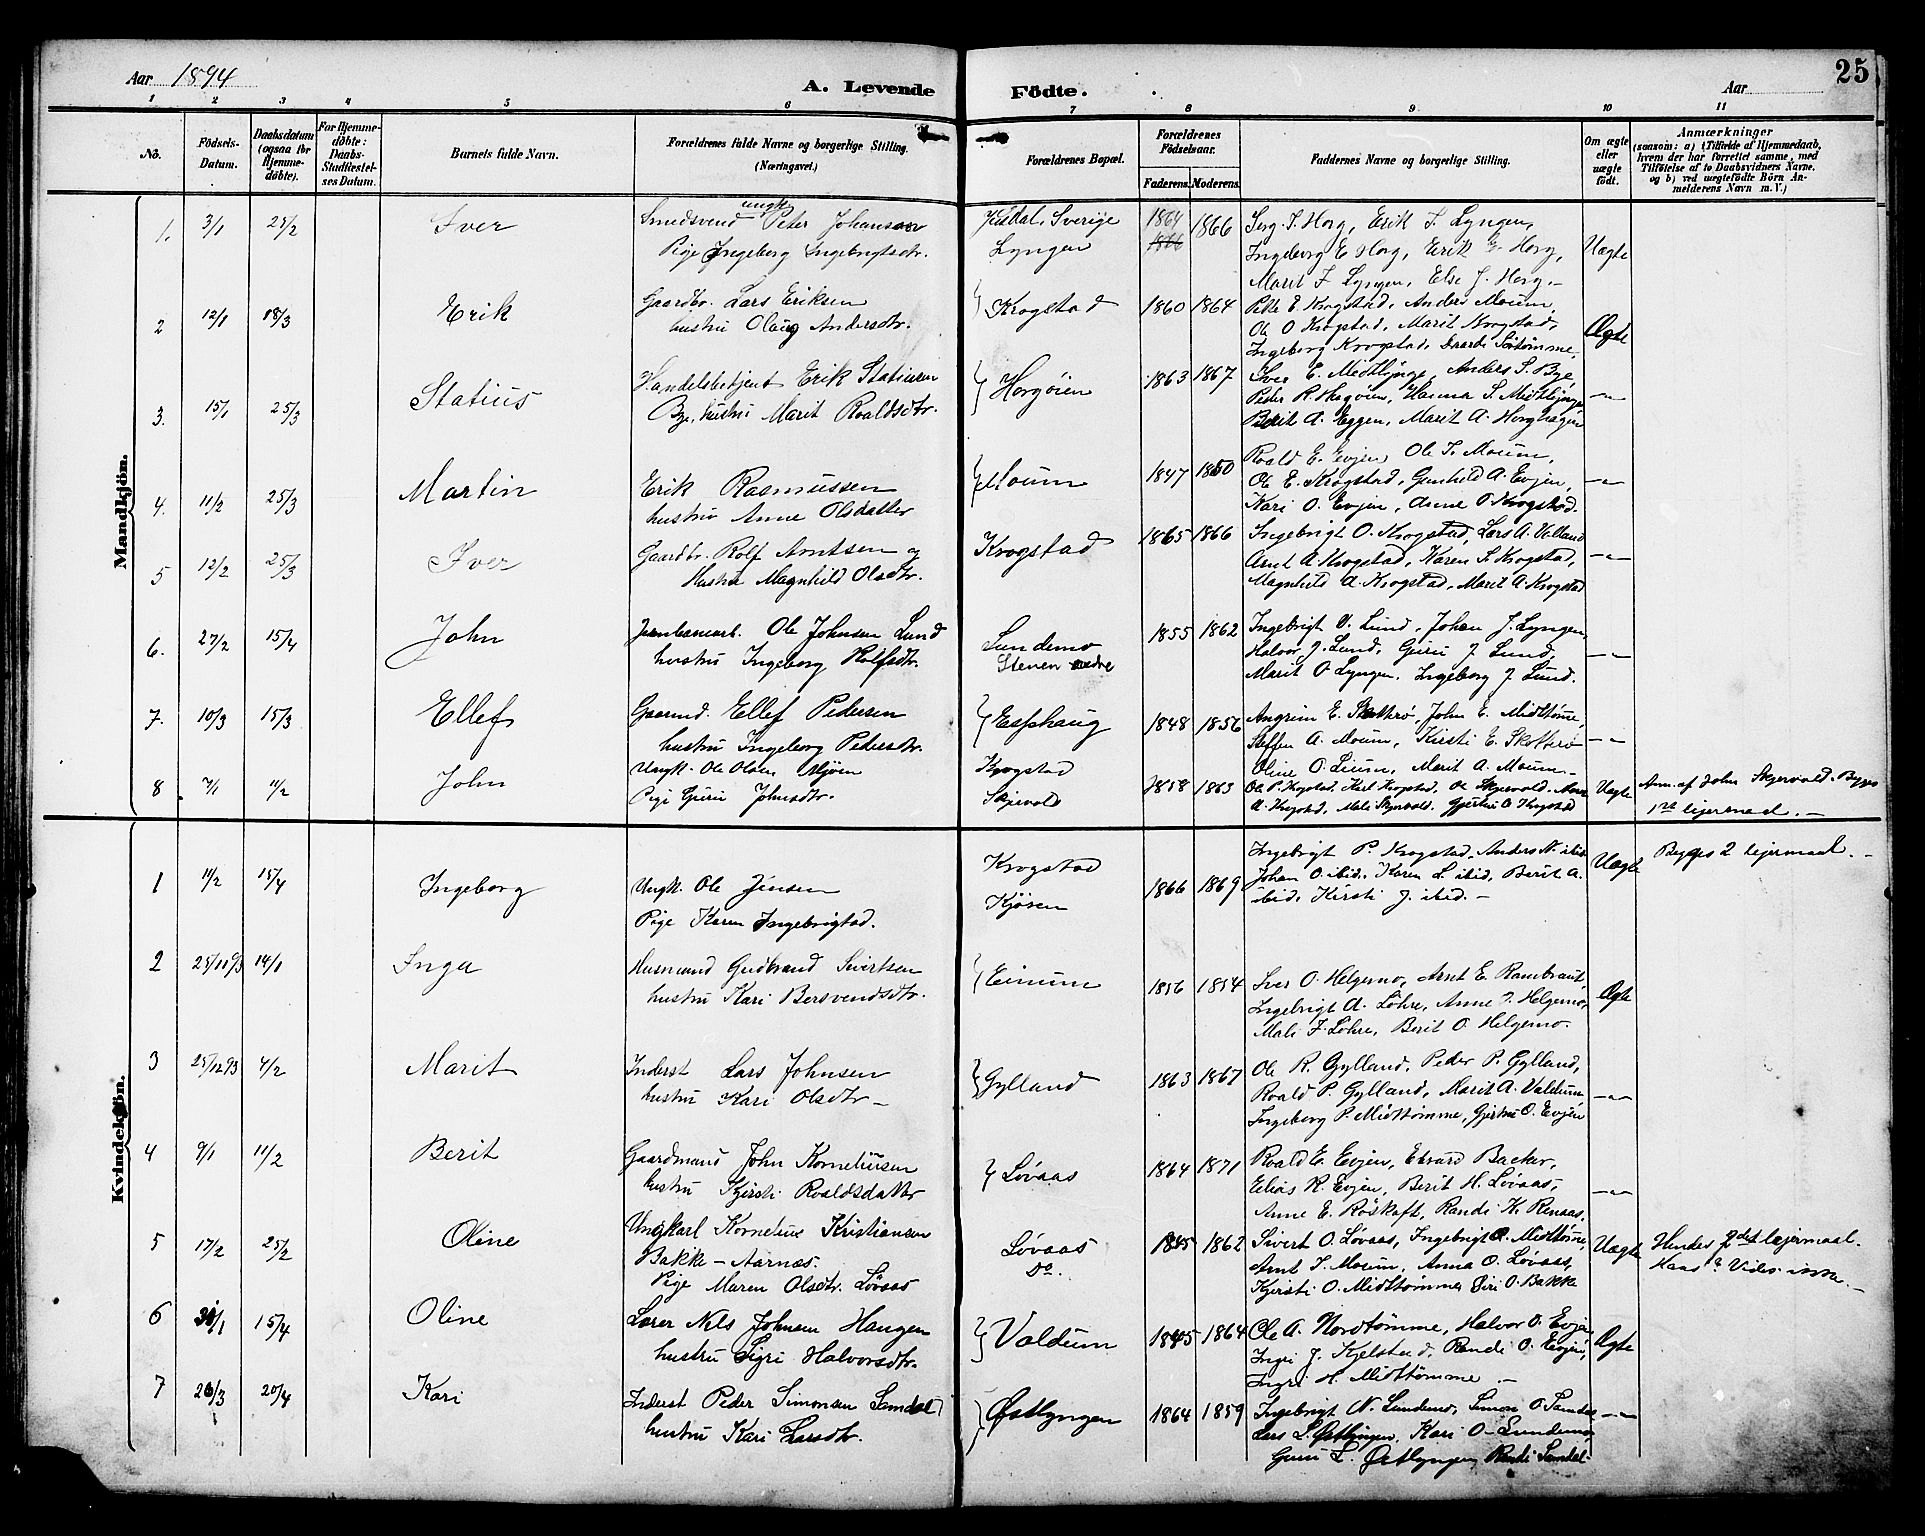 25
Aar 1894
A. Levende Födte.
Aar
1 2 3 4 5 6 7 8 9 10 11
No.
Födsels-Datum.
Daabsdatum (ogsaa for Hjemme-döbte).
For Hjemme-döbte: Daabs-Stadfæstel-ses Datum.
Barnets fulde Navn.
Forældrenes fulde Navne og borgerlige Stilling.
(Næringsvei.)
Forældrenes Bopæl.
Forældrenes Födselsaar.
Faderens. Moderens.
Faddernes Navne og borgerlige Stilling.
Om ægte eller uægte födt.
Anmærkninger
(saasom: a) i Tilfælde af Hjemmedaab, hvem der har forrettet samme, med Tilföielse af to Daabsvidners Navne, og b) ved uægtefödte Börn An-melderens Navn m. V.)
Mandkjön.
1. 3/1 25/2 Iver
Smedsvend ungk Peter Johansen
Pige Ingeborg Ingebrigtsdtr.
Sverige
Lyngen
1864 1866
1866
I. Horg, Erik I. Lyngen,
Ingeborg E Horg, Erik E. Horg,
Marit I. Lyngen, Else J. Horg.
Uægte
2 12/1 18/3 Erik
Gaardbr. Lars Eriksen
hustru Olaug Andersdtr.
Krogstad
1860 1864
E Krogstad, Anders Moum,
Ole O Krogstad, Marit Krogstad,
Ingeborg Krogstad,
Ægte
3. 15/1 25/3 Statius
Handelsbetjent Erik Statiusen
Bye, hustru Marit Roaldsdtr.
Horgöien
1863 1867
Iver E. Midtlyng, Anders S. Bye,
Peder R. Hagöien, Hanna S. Midtlyng
Berit A. Eggen, Marit A. Horghagen
-"-
4. 11/2 25/3 Martin
Erik Rasmussen
hustru Anne Olsdatter
Moum
1847 1850
Roald E. Evjen, Ole I. Moum,
Ole E. Krogstad, Gunhild A. Evjen,
Kari O. Evjen, Anne O Krogstad.
-"-
5 12/2 25/3 Iver
Gaardbr. Rolf Arntsen og
Hustru Magnhild Olsdtr.
Krogstad
1865 1866
Ingebrigt O. Krogstad, Lars A. Volland
Arnt A Krogstad, Karen L Krogstad,
Magnhild A. Krogstad, Marit A. Krogstad
-"-
6. 27/2 15/4 John
Jernbanearb. Ole Johnsen Lund
hustru Ingeborg Rolfsdtr.
Sundemo
Steren nedre
1855 1862
Ingebrigt O. Lund, Johan J. Lyngen,
Halvor J. Lund, Guru J Lund,
Marit O Lyngen, Ingeborg J Lund.
-"-
7. 10/3 15/3 Ellef
Gaarmd. Ellef Pedersen
hustru Ingeborg Pedersdtr.
Esphaug
1848 1856
Angrim E. Skotterø, John E. Midttømme,
Steffen A. Moum, Kirsti E. Skotterø
Oline O. Lium, Marit A. Moum
-"-
8 7/1 11/2 John
Ungk. Ole Olsen Mjöen
Pige Guru Johnsdtr.
Krogstad
Skjervold
1858 1863
Ole P. Krogstad, Karl Krogstad, Ole Skjervold, Anne
A. Krogstad, Mali Skjervold, Gjertru O Krogstad
Uægte
Anm. af John Skjervold. Begges
1ste lejermaal.
Kvindekjön.
1 11/2 15/4 Ingeborg
Ungk. Ole Jensen
Pige Karen Ingebrigtsd.
Krogstad
Kjösen
1866 1869
Ingebrigt P. Krogstad, Anders N. ibid
Johan O ibid, Karen L ibid, Berit A.
ibid, Kirsti J. ibid.
Uægte
Begges 2 lejermaal.
2 25/11 93 14/1 Inga
Husmand Gudbrand Sivertsen
hustru Kari Bersvendsdtr.
Einum
1856 1854
Iver O. Helgemo, Arnt E. Rambraut,
Ingebrigt A. Löhre, Anne I. Helgemo,
Mali I. Löhre, Berit O. Helgemo.
Ægte
3 25/12 93 4/2 Marit
Inderst Lars Johnsen
hustru Kari Olsdtr
Gylland
1863 1867
Ole R. Gylland, Peder P. Gylland,
Roald P. Gylland, Marit A. Valdum
Ingeborg P. Midttømme, Gjertru O. Evjen
-"-
4 9/1 11/2 Berit
Gaardmand John Korneliusen
hustru Kjersti Roaldsdatter
Løvaas
1864 1871
Roald E. Evjen, Edvard Backer,
Elias R. Evjen, Berit H. Løvaas,
Anne E. Röskaft, Randi K. Renaas,
-"-
5 17/2 25/2 Oline
Ungkarl Kornelius Kristiansen
Bakke - Aarnæs.
Pige Maren Olsdtr. Løvaas
Løvaas
Do.
1845 1862
Sivert O. Løvaas, Ingebrigt O. Midttømme,
Arnt I. Moum, Anna O. Løvaas,
Kjersti O. Midttømme, Siri O. Bakke
Uægte
Hendes 2det lejermaal.
Hans ? Vides ikke.
6 15/4 Oline
Lærer Nils Johnsen Haugen
hustru Sigri Halvorsdtr.
Valdum
1845 1864
Ole A. Nordtømme, Halvor O. Evjen
Ingri J. Kjelstad, Randi O. Evjen,
Ingri H. Midttømme
Ægte
7 20/4 Kari
Inderst Peder Simonsen Samdal
hustru Kari Larsdtr.
Østlyngen
1864 1859
Ingebrigt N. Sundemo, Simon O. Samdal
Lars L. Østlyngen, Kari O. Sundemo,
Guru L. Østlyngen, Randi Samdal
-"-